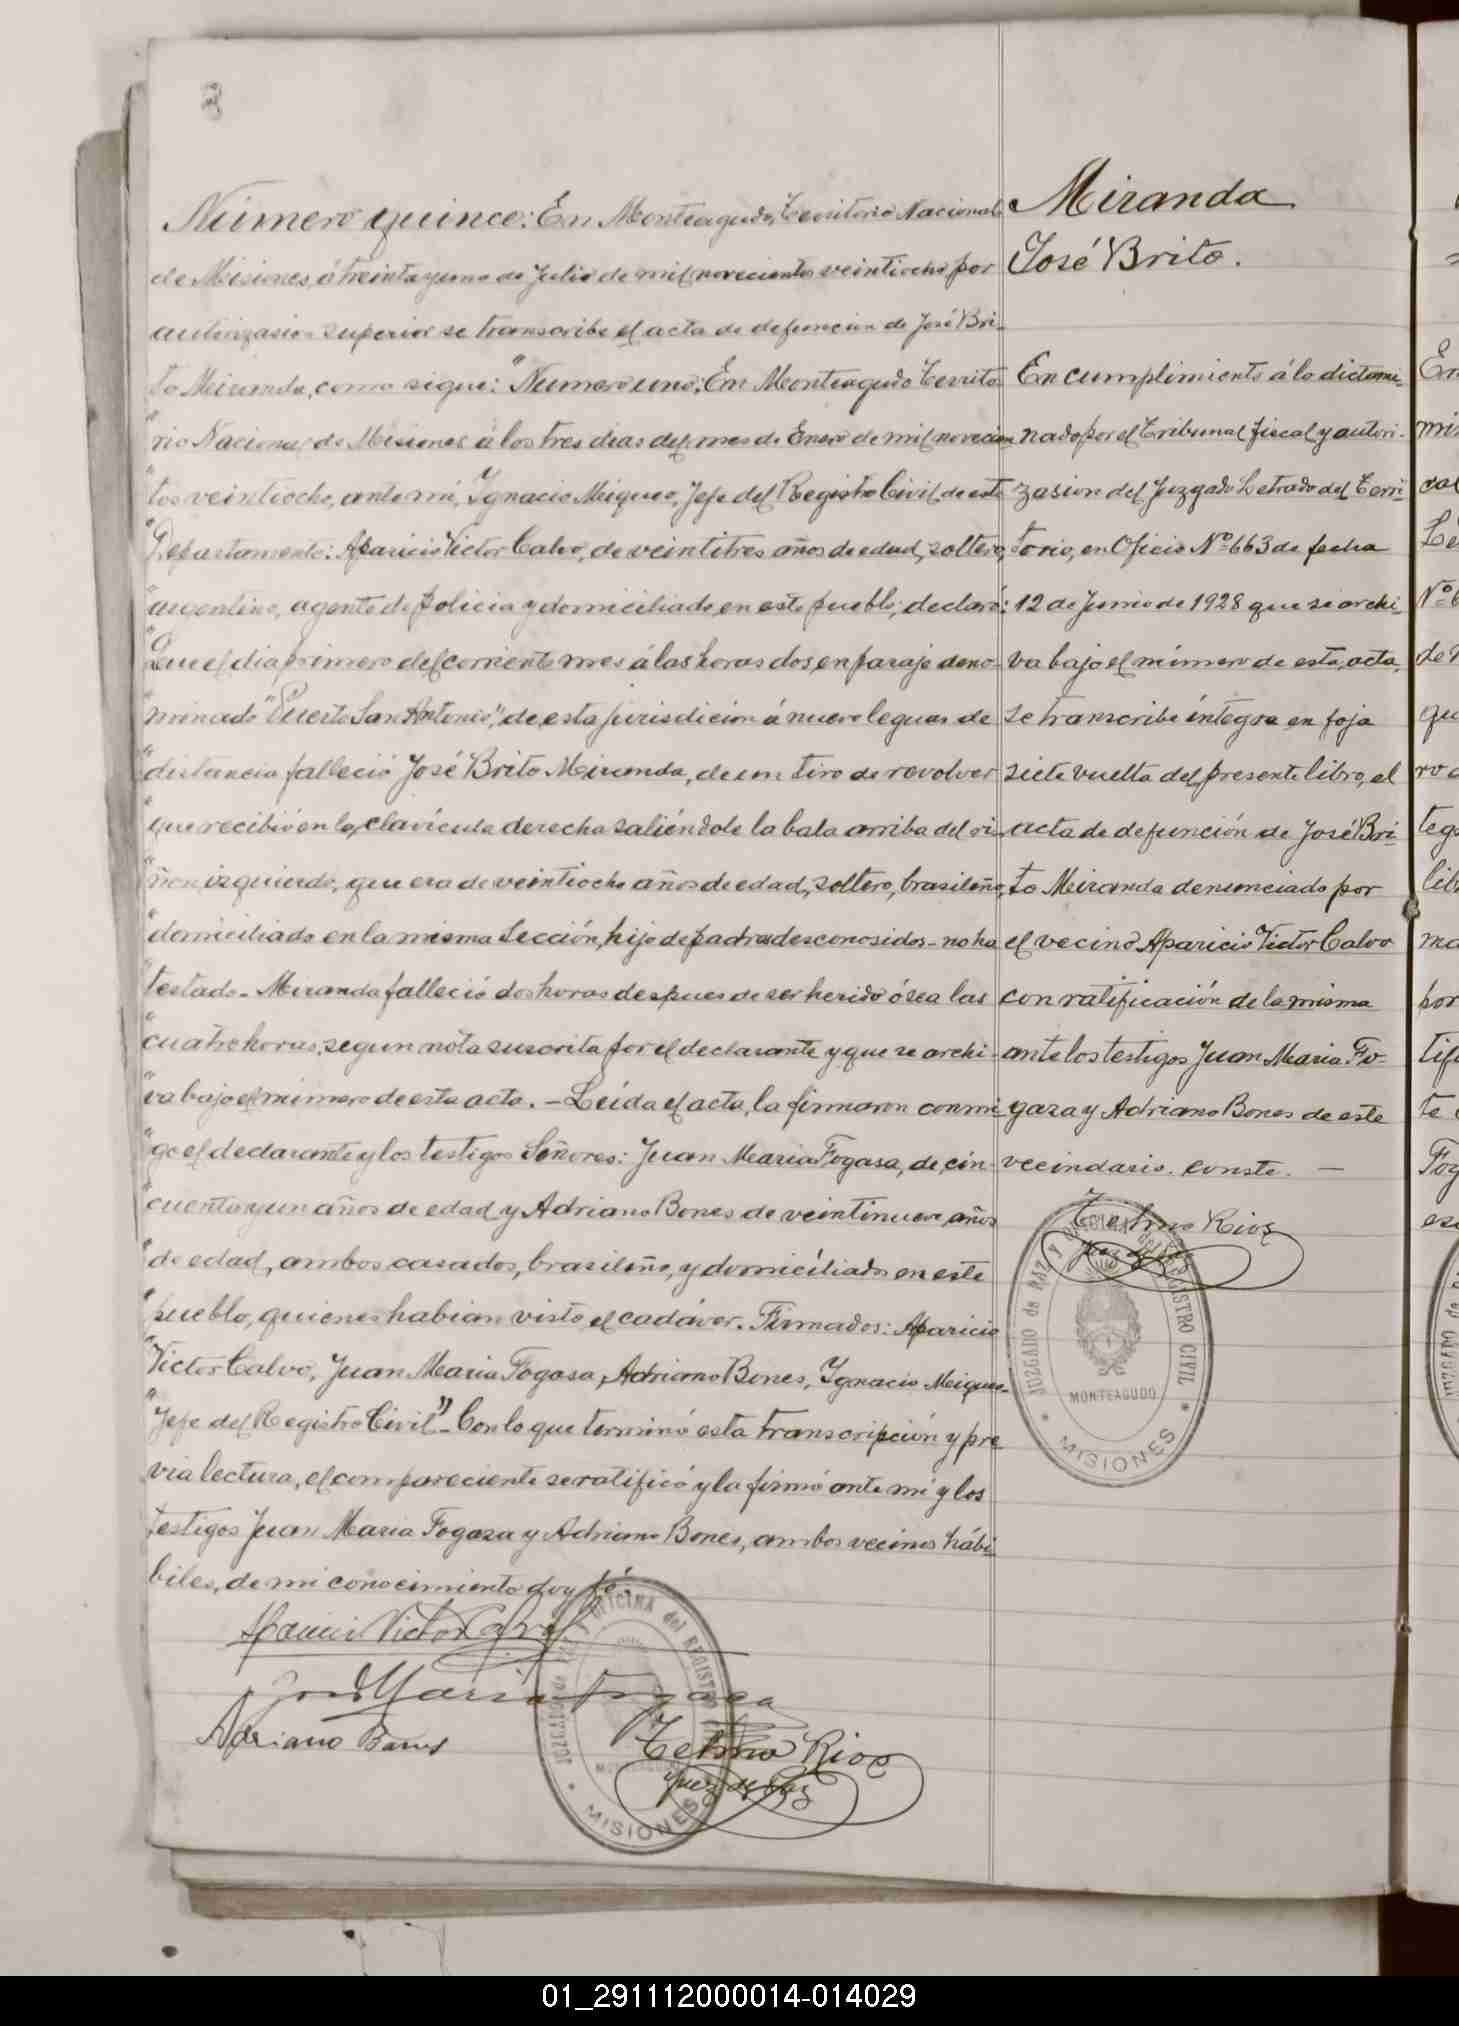 Número quince: En Monteagudo, Territorio Nacional
de Misiones, á treinta y uno de Julio de mil novecientos veintiocho por
autorizasion superior se transcribe el acta de defuncion de José Bri-
to Miranda, como sigue: "Numero uno: En Monteagudo Territo-
"rio Nacional de Misiones á los tres dias del mes de Enero de mil novecien-
"tos veintiocho, ante mi, Ignacio Meigues, Jefe del Registro Civil de este
"Departamento: Aparicio Victor Calvo, de veintitres años de edad, soltero,
"argentino, agente de policia y domiciliado en este pueblo, declaró:
"Que el dia primero del corriente mes á las horas dos, en paraje deno-
"minado "Puerto San Antonio", de esta jurisdicion á nueve leguas de
"distancia falleció José Brito Miranda, de un tiro de revolver
"que recibió en la clavícula derecha saliéndole la bala arriba del ri-
"ñon izquierdo, que era de veintiocho años de edad, soltero, brasileño,
"domiciliado en la misma Sección, hijo de padres desconosidos - no ha
"testado - Miranda falleció dos horas despues de ser herido ó sea las
"cuatro horas, segun nota suscrita por el declarante y que se archi-
"va bajo el número de esta acta. - Leída el acta, la firmaron conmi-
"go el declarante y los testigos Señores: Juan Maria Fogasa, de cin-
"cuenta y un años de edad y Adriano Bones de veintinueve años
"de edad, ambos casados, brasileño, y domiciliados en este
"pueblo, quienes habian visto el cadáver. Firmados: Aparicio
"Victor Calvo, Juan Maria Fogasa, Adriano Bones, Ignacio Meigues-
"Jefe del Registro Civil" - Con lo que terminó esta transcripción y pre
via lectura, el compareciente se ratificó y la firmó ante mí y los
testigos Juan Maria Fogaza y Adriano Bones, ambos vecinos hábi-
biles, de mi conocimiento doy fé.
Aparicio Victor Calvo
Juan Maria Fogaca
Adriano Bones
Telmo Rios
Juez de Paz
JUZGADO de PAZ Y OFICINA del REGISTRO CIVIL
MONTEAGUDO
MISIONES
Miranda
José Brito.
En cumplimiento á lo dictami-
nado por el Tribunal fiscal y autori-
zasion del Juzgado Letrado del Terri-
torio, en Oficio Nº 663 de fecha
12 de Junio de 1928 que se archi-
va bajo el número de esta acta,
se transcribe íntegra en foja
siete vuelta del presente libro, el
acta de defunción de José Bri-
to Miranda denunciado por
el vecino Aparicio Victor Calvo
con ratificación de la misma
ante los testigos Juan Maria Fo-
gaza y Adriano Bones de este
vecindario. conste. —
Telmo Rios
Juez de Paz
JUZGADO de PAZ Y OFICINA del REGISTRO CIVIL
MONTEAGUDO
MISIONES
01_291112000014-014029